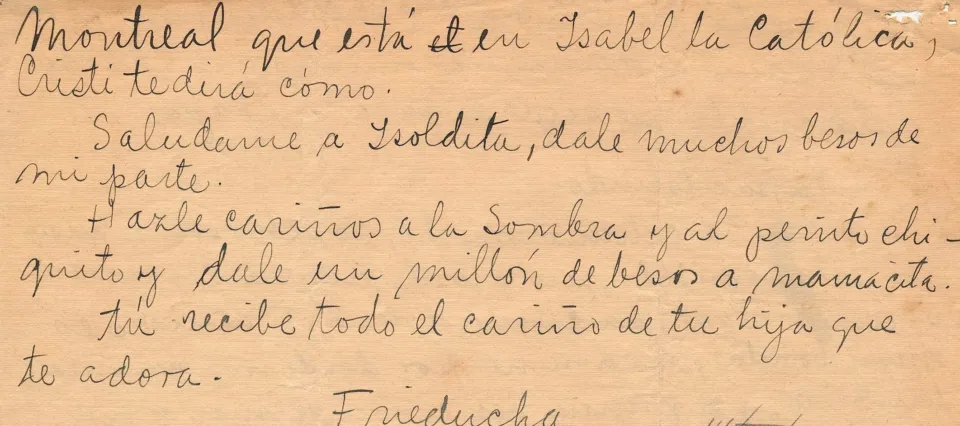 Montreal que está en Isabel la Católica,
Cristi te dirá cómo.
Saludame a Isoldita, dale muchos besos de
mi parte.
Hazle cariños a la Sombra y al perrito chi-
quito y dale un millón de besos a mamacita.
tú recibe todo el cariño de tu hija que
te adora.
Frieducha